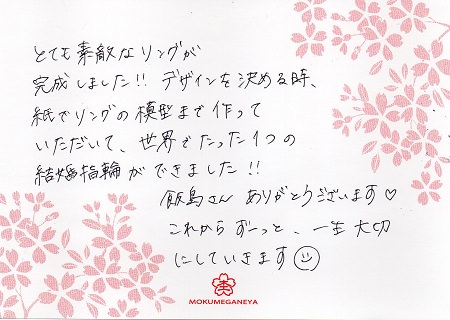 とても素敵なリングが
完成しました!! デザインを決める時、
紙でリングの模型まで作って
いただいて、世界でたった1つの
結婚指輪ができました!!
飯島さん ありがとうございます♡
これからずーっと、一生大切
にしていきます☺
MOKUMEGANEYA